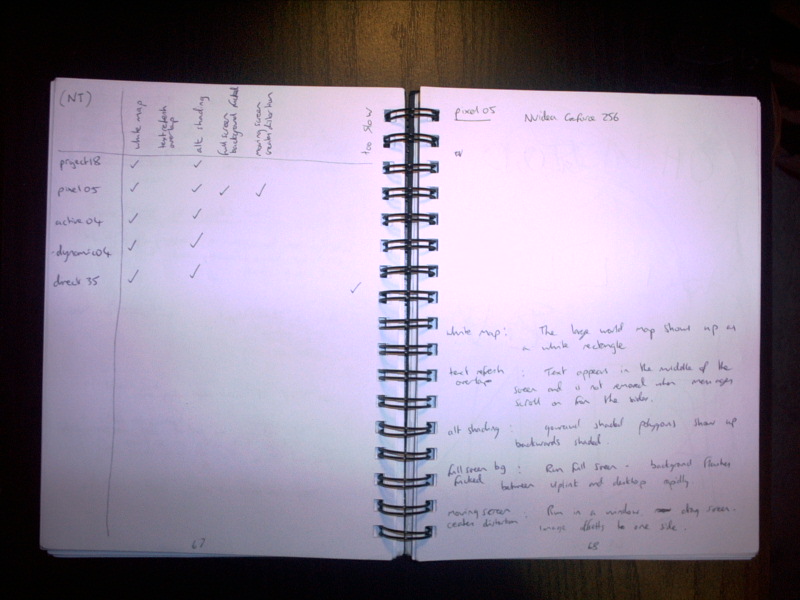 (NT)
white map
text refresh
overlap
alt shading
full screen
background fucked
moving screen
center distortion
too slow
project18 ✓ ✓
pixel05 ✓ ✓ ✓ ✓
active04 ✓ ✓
dynamic04 ✓ ✓
direct35 ✓ ✓ ✓
67
pixel05 NVidea GeForce 256
white map : The large world map shows up as
a white rectangle
text refresh : Text appears in the middle of the
overlap screen and is not removed when messages
scroll on from the sides.
alt shading : gouraud shaded polygons show up
backwards shaded.
full screen bg : Run full screen - background flashes
fucked between Uplink and desktop rapidly.
moving screen : Run in a window, drag screen.
center distortion Image offsets to one side.
68